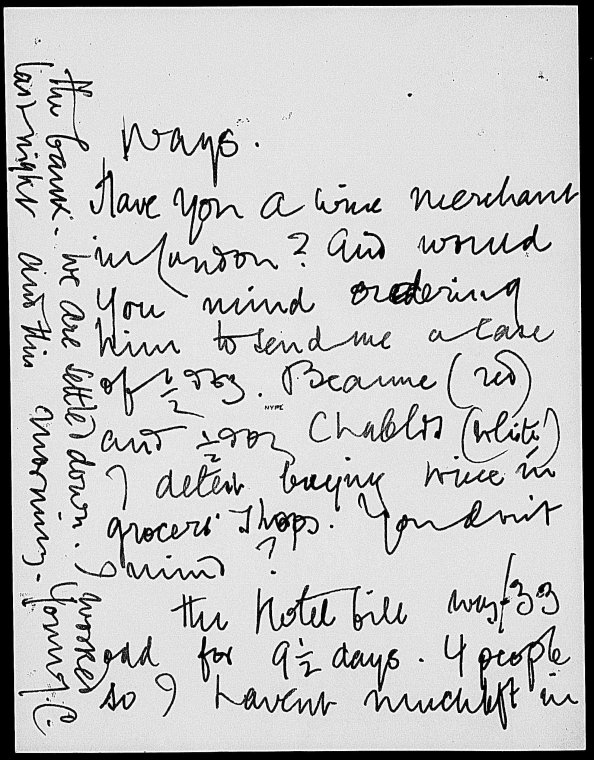 ways.
Have you a wine merchant
in London? And would
you mind ordering
him to send me a case
of ½ doz. Beaune (red)
and ½ doz Chablis (white)
NYPL
I detest buying wine in
grocers' shops. You don't
mind?
The hotel bill was £33
odd for 9½ days. 4 people
so I havent much left in
the bank. We are settled down. I worked
last night and this morning. Young. C.